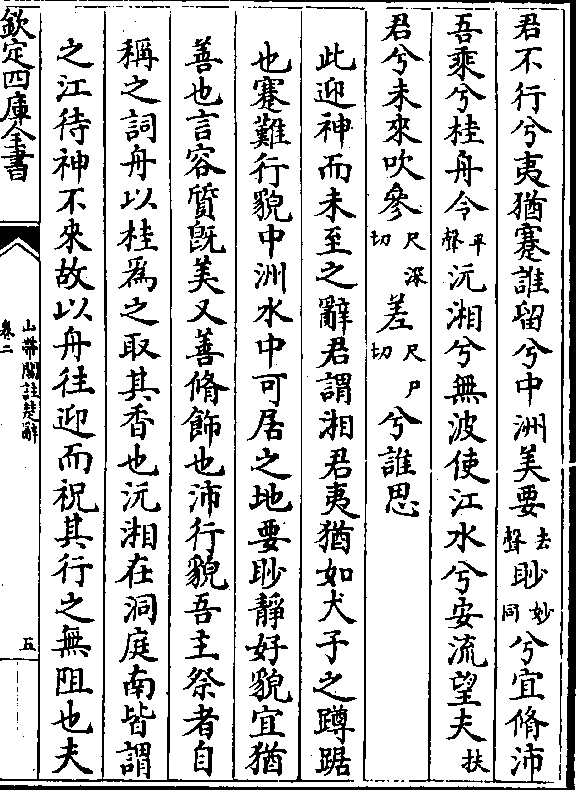 君不行兮夷猶蹇誰留兮中洲美要去聲眇妙同兮宜脩沛
吾乘兮桂舟令平聲沅湘兮無波使江水兮安流望夫扶
君兮未來吹參尺深切差尺尸切兮誰思
此迎神而未至之辭君謂湘君夷猶如犬子之蹲踞
也蹇難行貌中洲水中可居之地要眇靜好貌宜猶
善也言容質既美又善脩飾也沛行貌吾主祭者自
稱之詞舟以桂為之取其香也沅湘在洞庭南皆謂
之江待神不來故以舟往迎而祝其行之無阻也夫
欽定四庫全書
山帶閣註楚辭
卷二
五